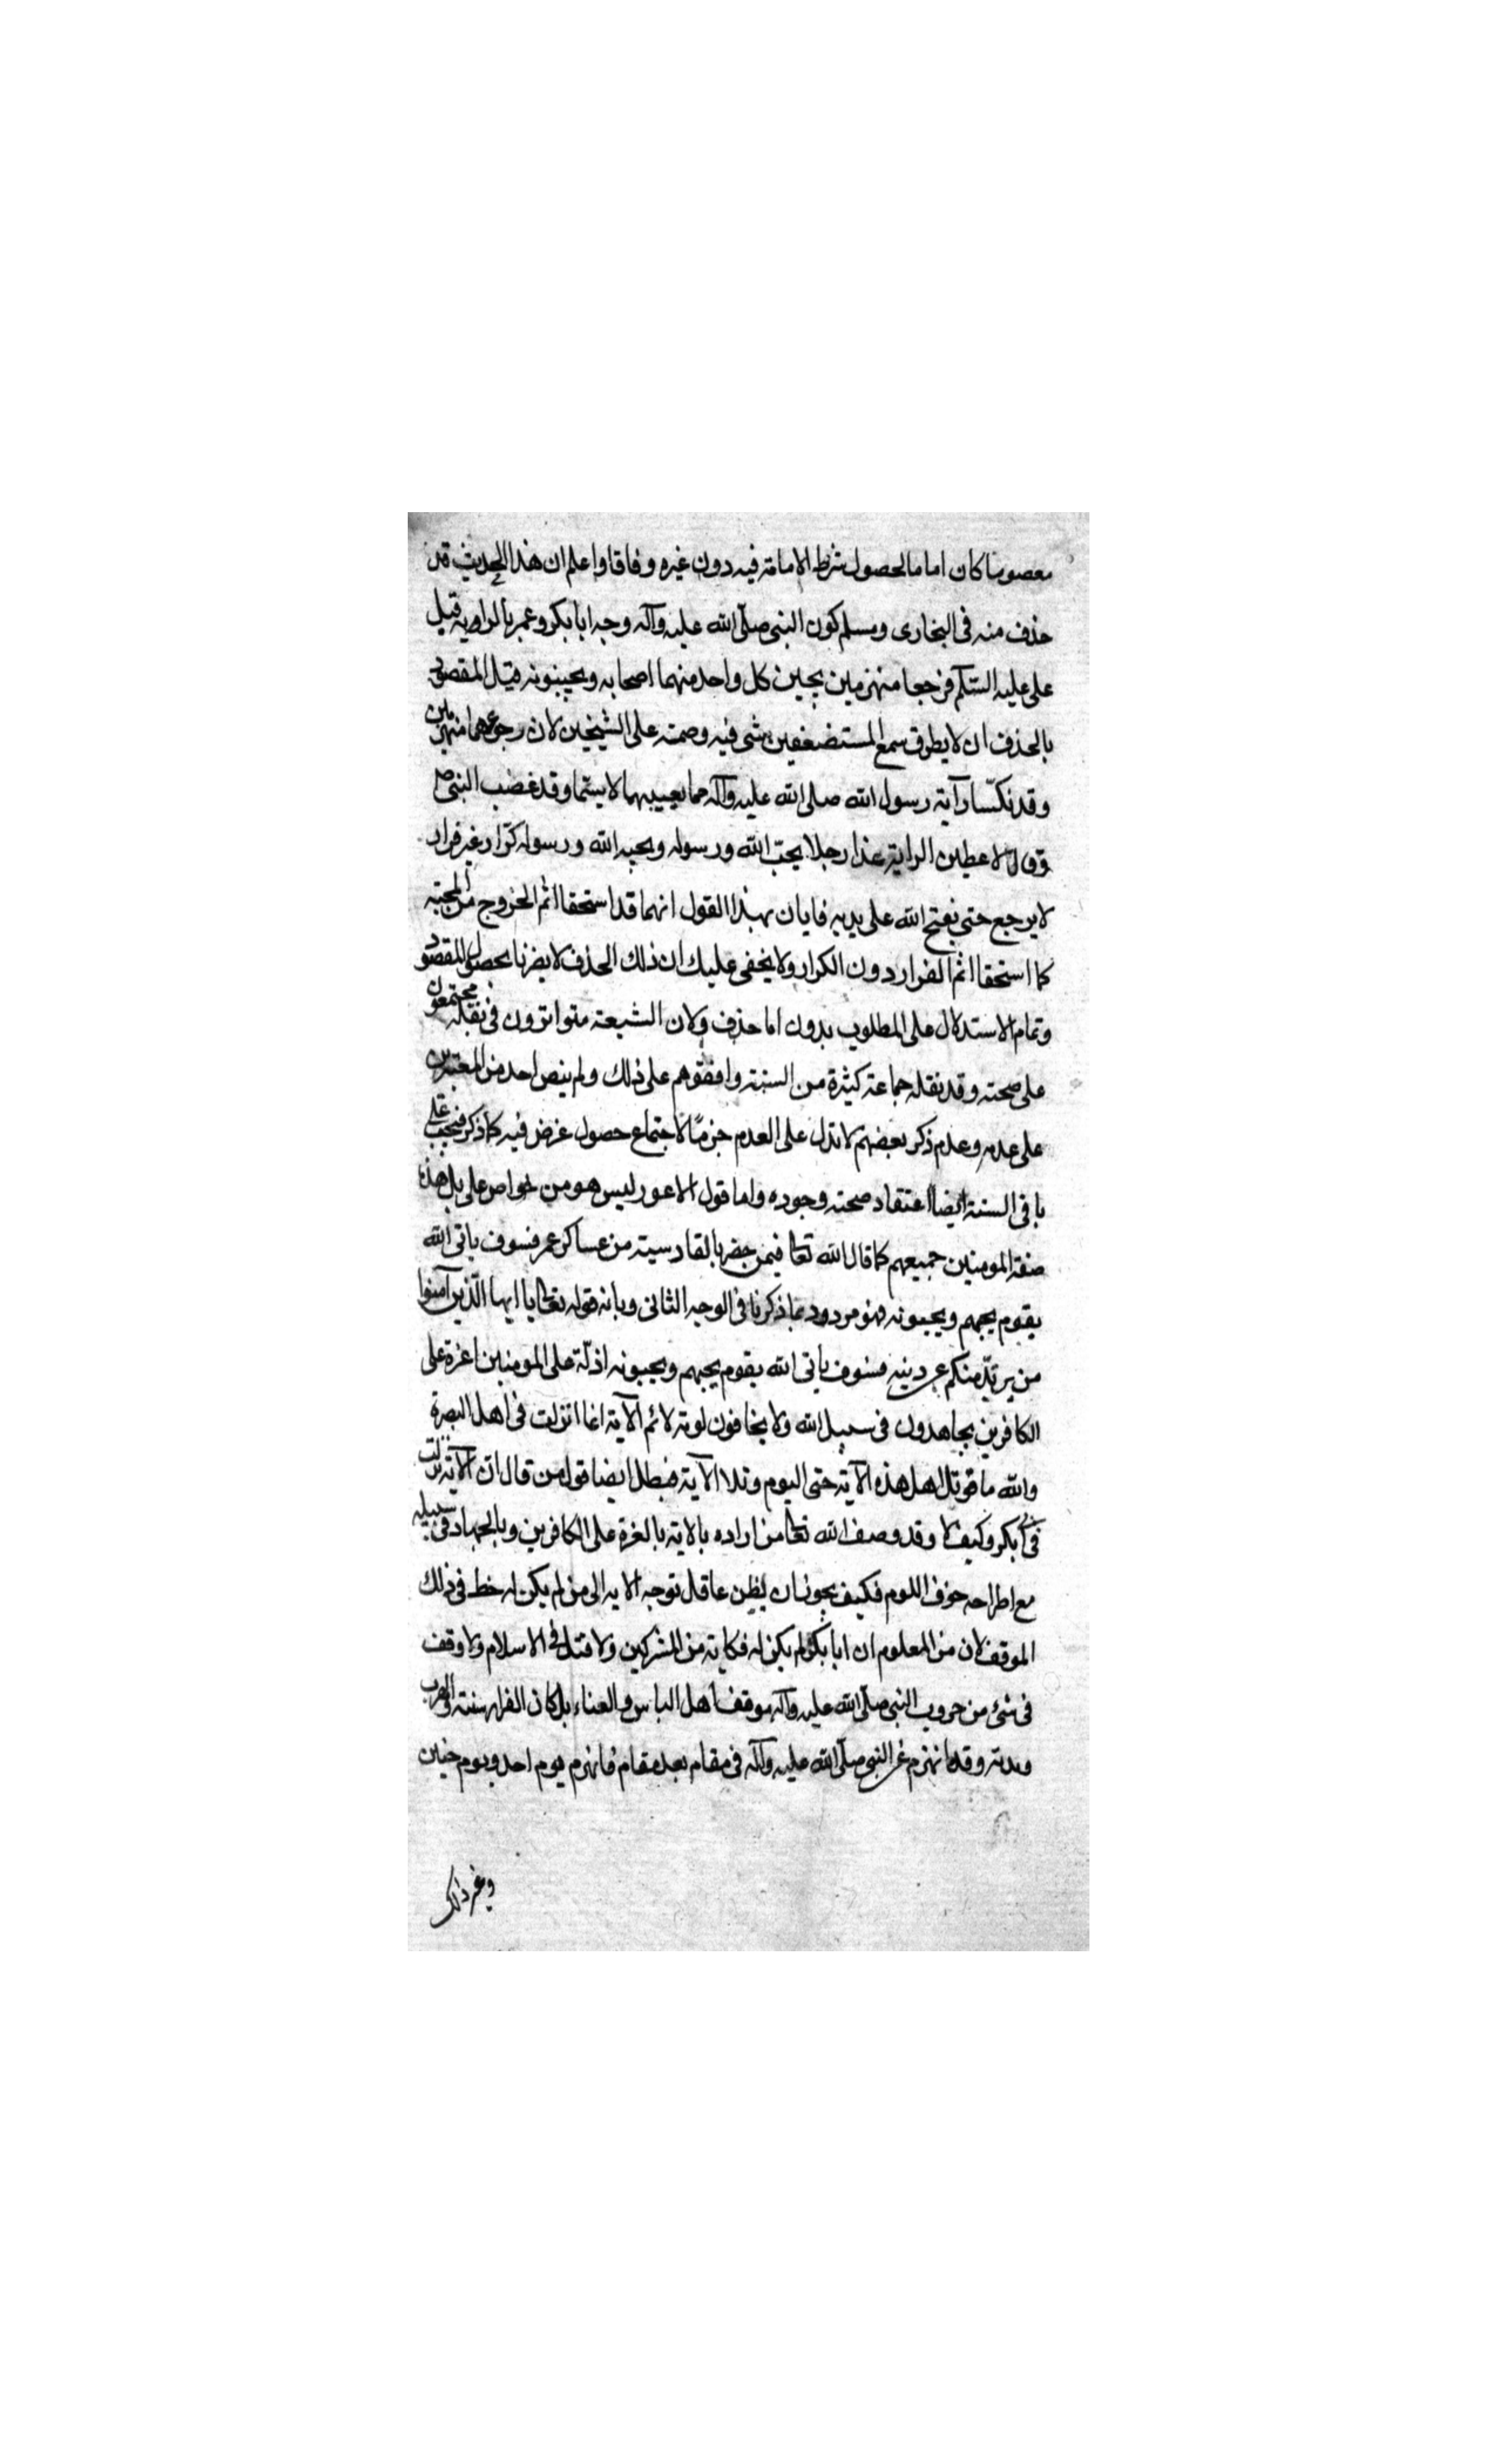 معصوما كان اماما لحصول شرط الامامة فيه دون غيره وفاقا واعلم ان هذا الحديث قد
حذف منه فى البخارى ومسلم كون النبى صلّى الله عليه وآله وجه ابا بكر وعمر بالراية قبل
على عليه السّلم فرجعا منهزمين يجبن كل واحد منهما اصحابه ويجبنونه قيل المقصود
بالحذف ان لا يطرق سمع المستضعفين شى فيه وصمة على الشيخين لان رجوعهما منهزمين
وقد نكّسا رآية رسول الله صلى الله عليه وآله مما يعيبهما لا سيّما وقد غضب النبى ص
وقال لاعطين الراية غدا رجلا يحبّ الله ورسوله ويحبه الله ورسوله كرّار غير فرار
لا يرجع حتى يفتح الله على يديه فابان بهذا القول انهما قد استحقا اثم الخروج من المحبة
كما استحقا اثم الفرار دون الكرار ولا يخفى عليك ان ذلك الحذف لا يضرنا بحصول المقصود
وتمام الاستدلال على المطلوب بدون ما حذف ولان الشيعة متواترون فى نقله مجتمعون
على صحته وقد نقله جماعة كثيرة من السنة وافقوهم على ذلك ولم ينص احد من المعتبرين
على عدمه وعدم ذكر بعضهم لا تدل على العدم جزمًا لاجتماع حصول غرض فيه كما ذكر فيجب على
باقى السنة ايضا اعتقاد صحته وجوده واما قول الاعور ليس هو من خواص على بل هذه
صفة المومنين جميعهم كما قال الله تعا فيمن حضر بالقادسية من عساكر عمر فسوف ياتى الله
بقوم يحبهم ويحبونه فهو مردود بما ذكرنا فى الوجه الثانى وبانه قوله تعا يا ايها الّذين آمنوا
من يرتدّ منكم عن دينه فسوف ياتى الله بقوم يحبهم ويحبونه اذلّة على المومنين اعزة على
الكافرين يجاهدون فى سبيل الله ولا يخافون لومة لائم الآية انما انزلت فى اهل البصرة
والله ما قوتل اهل هذه الآية حتى اليوم وتلا الآية فبطل ايضا قول من قال انّ الآية نزلت
فى ابى بكر وكيف لا وقد وصف الله تعا من اراده بالاية بالعزة على الكافرين وبالجهاد فى سبيله
مع اطراحه خوف اللوم فكيف يجوز ان يظن عاقل توجه الايه الى من لم يكن له حظ فى ذلك
الموقف لان من المعلوم ان ابا بكر لم يكن له نكاية من المشركين ولا قتل فى الاسلام ولا وقف
فى شئ من حروب النبى صلّى الله عليه وآله موقف اهل الباس والعناء بل كان الفرار سنته والهرب
وقد انهزم عن النبى صلّى الله عليه وآله فى مقام بعد مقام فانهزم يوم احد ويوم حنين
وغير ذلك